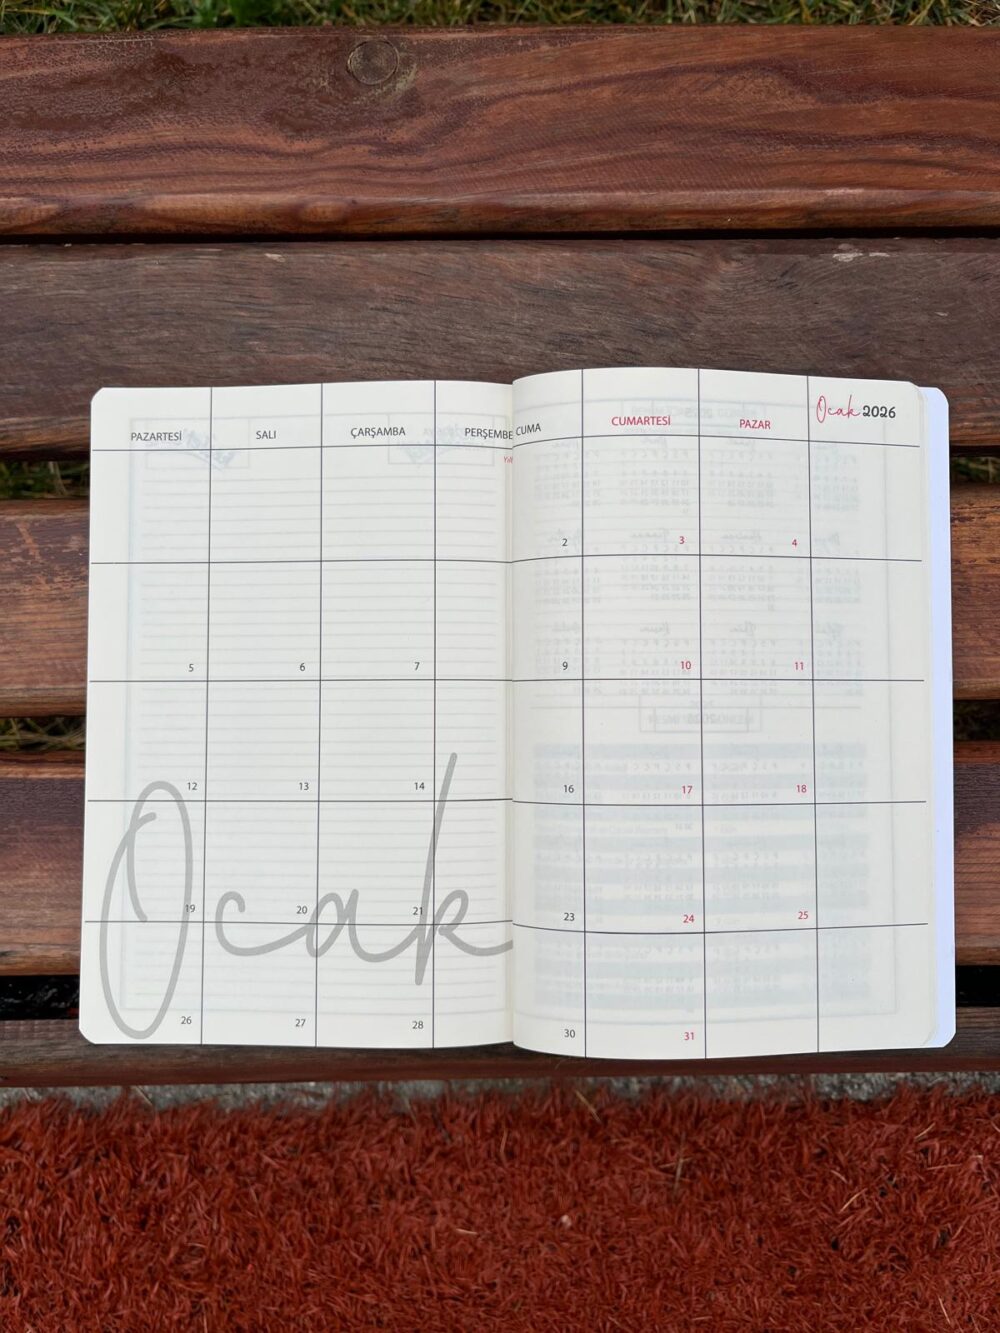 Ocak 2026
PAZARTESİ SALI ÇARŞAMBA PERŞEMBE CUMA CUMARTESİ PAZAR
2 3 4
5 6 7 9 10 11
12 13 14 16 17 18
19 20 21 23 24 25
Ocak
26 27 28 30 31